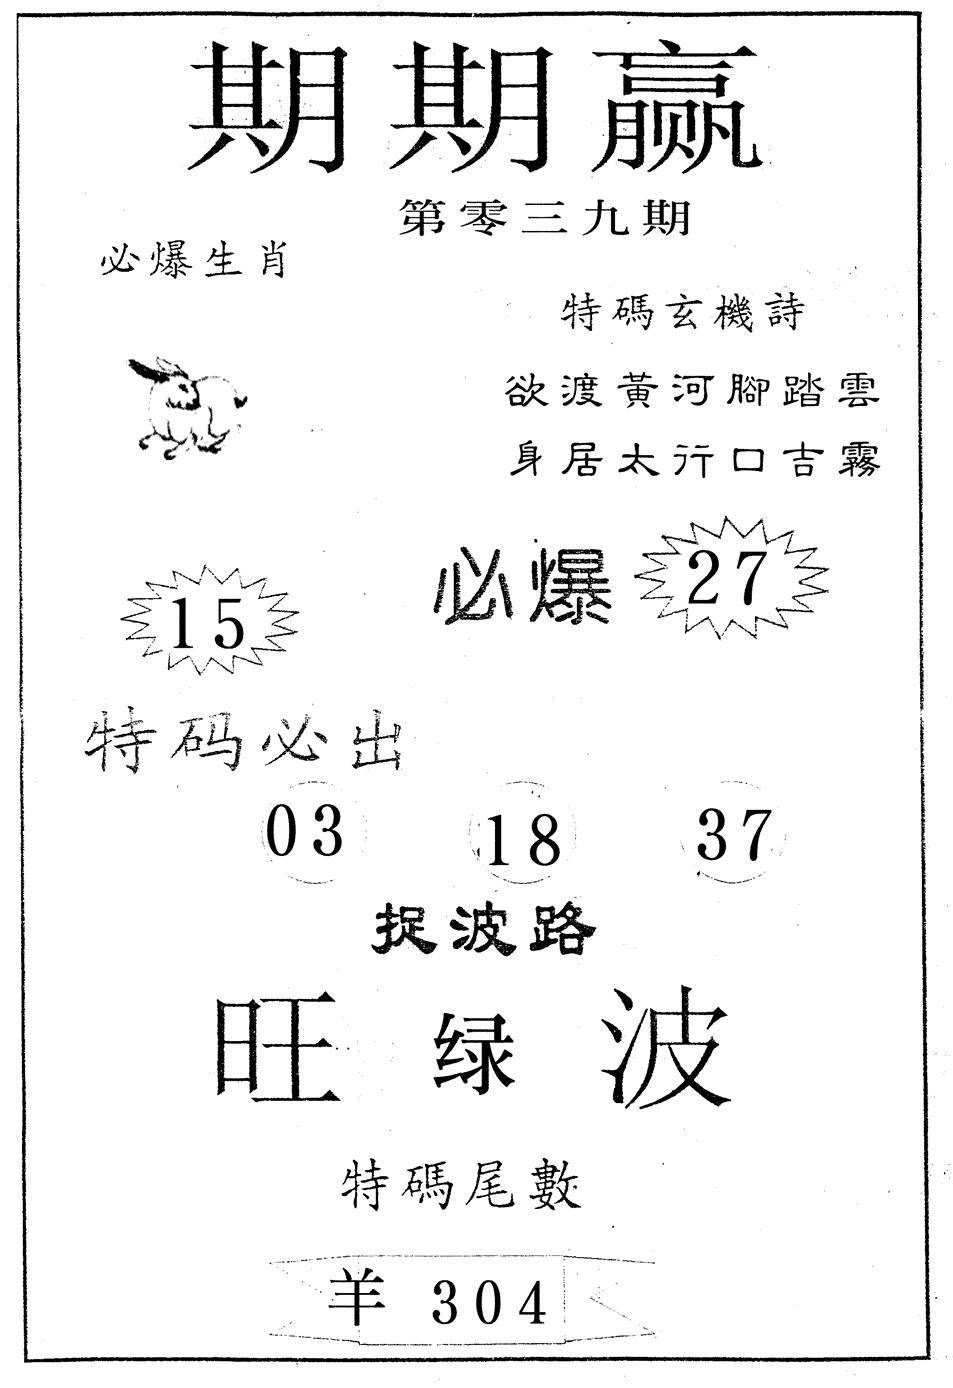 期期赢
第零三九期
必爆生肖
特碼玄機詩
欲渡黃河腳踏雲
身居太行口吉霧
必爆 27
15
特码必出
03 18 37
捉波路
旺绿波
特碼尾數
羊 304